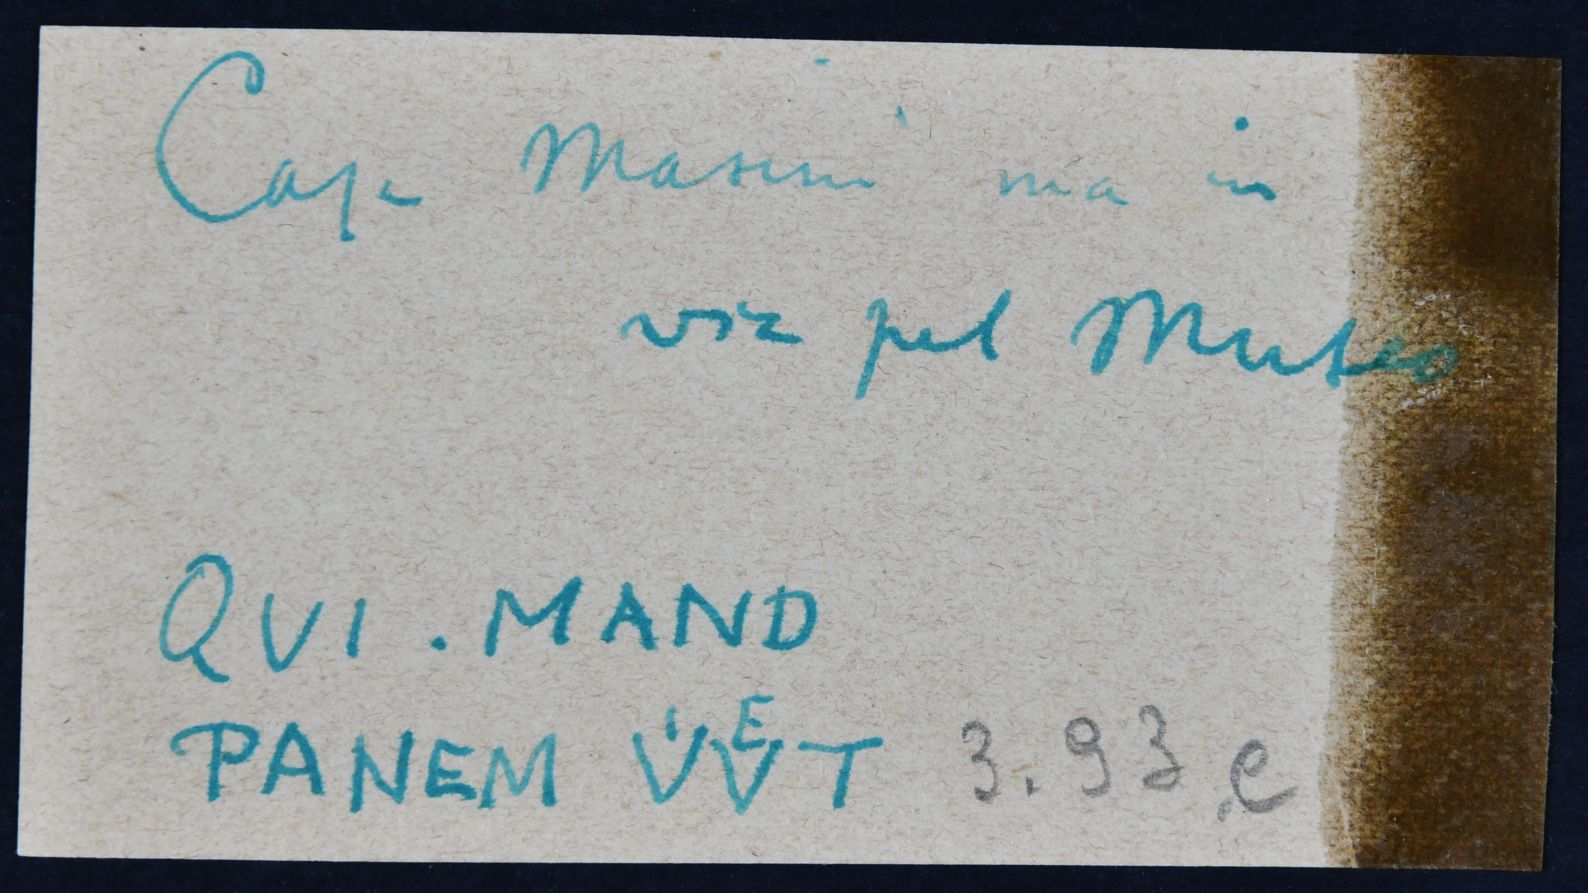 Casa Masini ma in
via pel Museo
QUI . MAND
PANEM VIVET 3.93 e